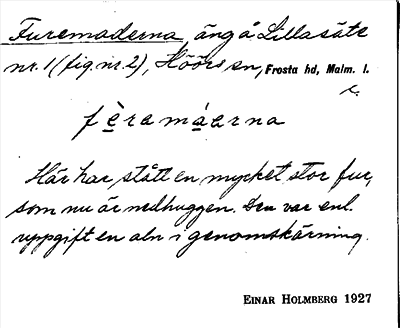 Furemaderna, äng å Lillasäte
nr. 1 (fig. nr. 2), Höörs sn, Frosta hd, Malm. l.
fɛ̀ra máerna
Här har stått en mycket stor fur,
som nu är nedhuggen. Den var enl.
uppgift en aln i genomskärning.
EINAR HOLMBERG 1927